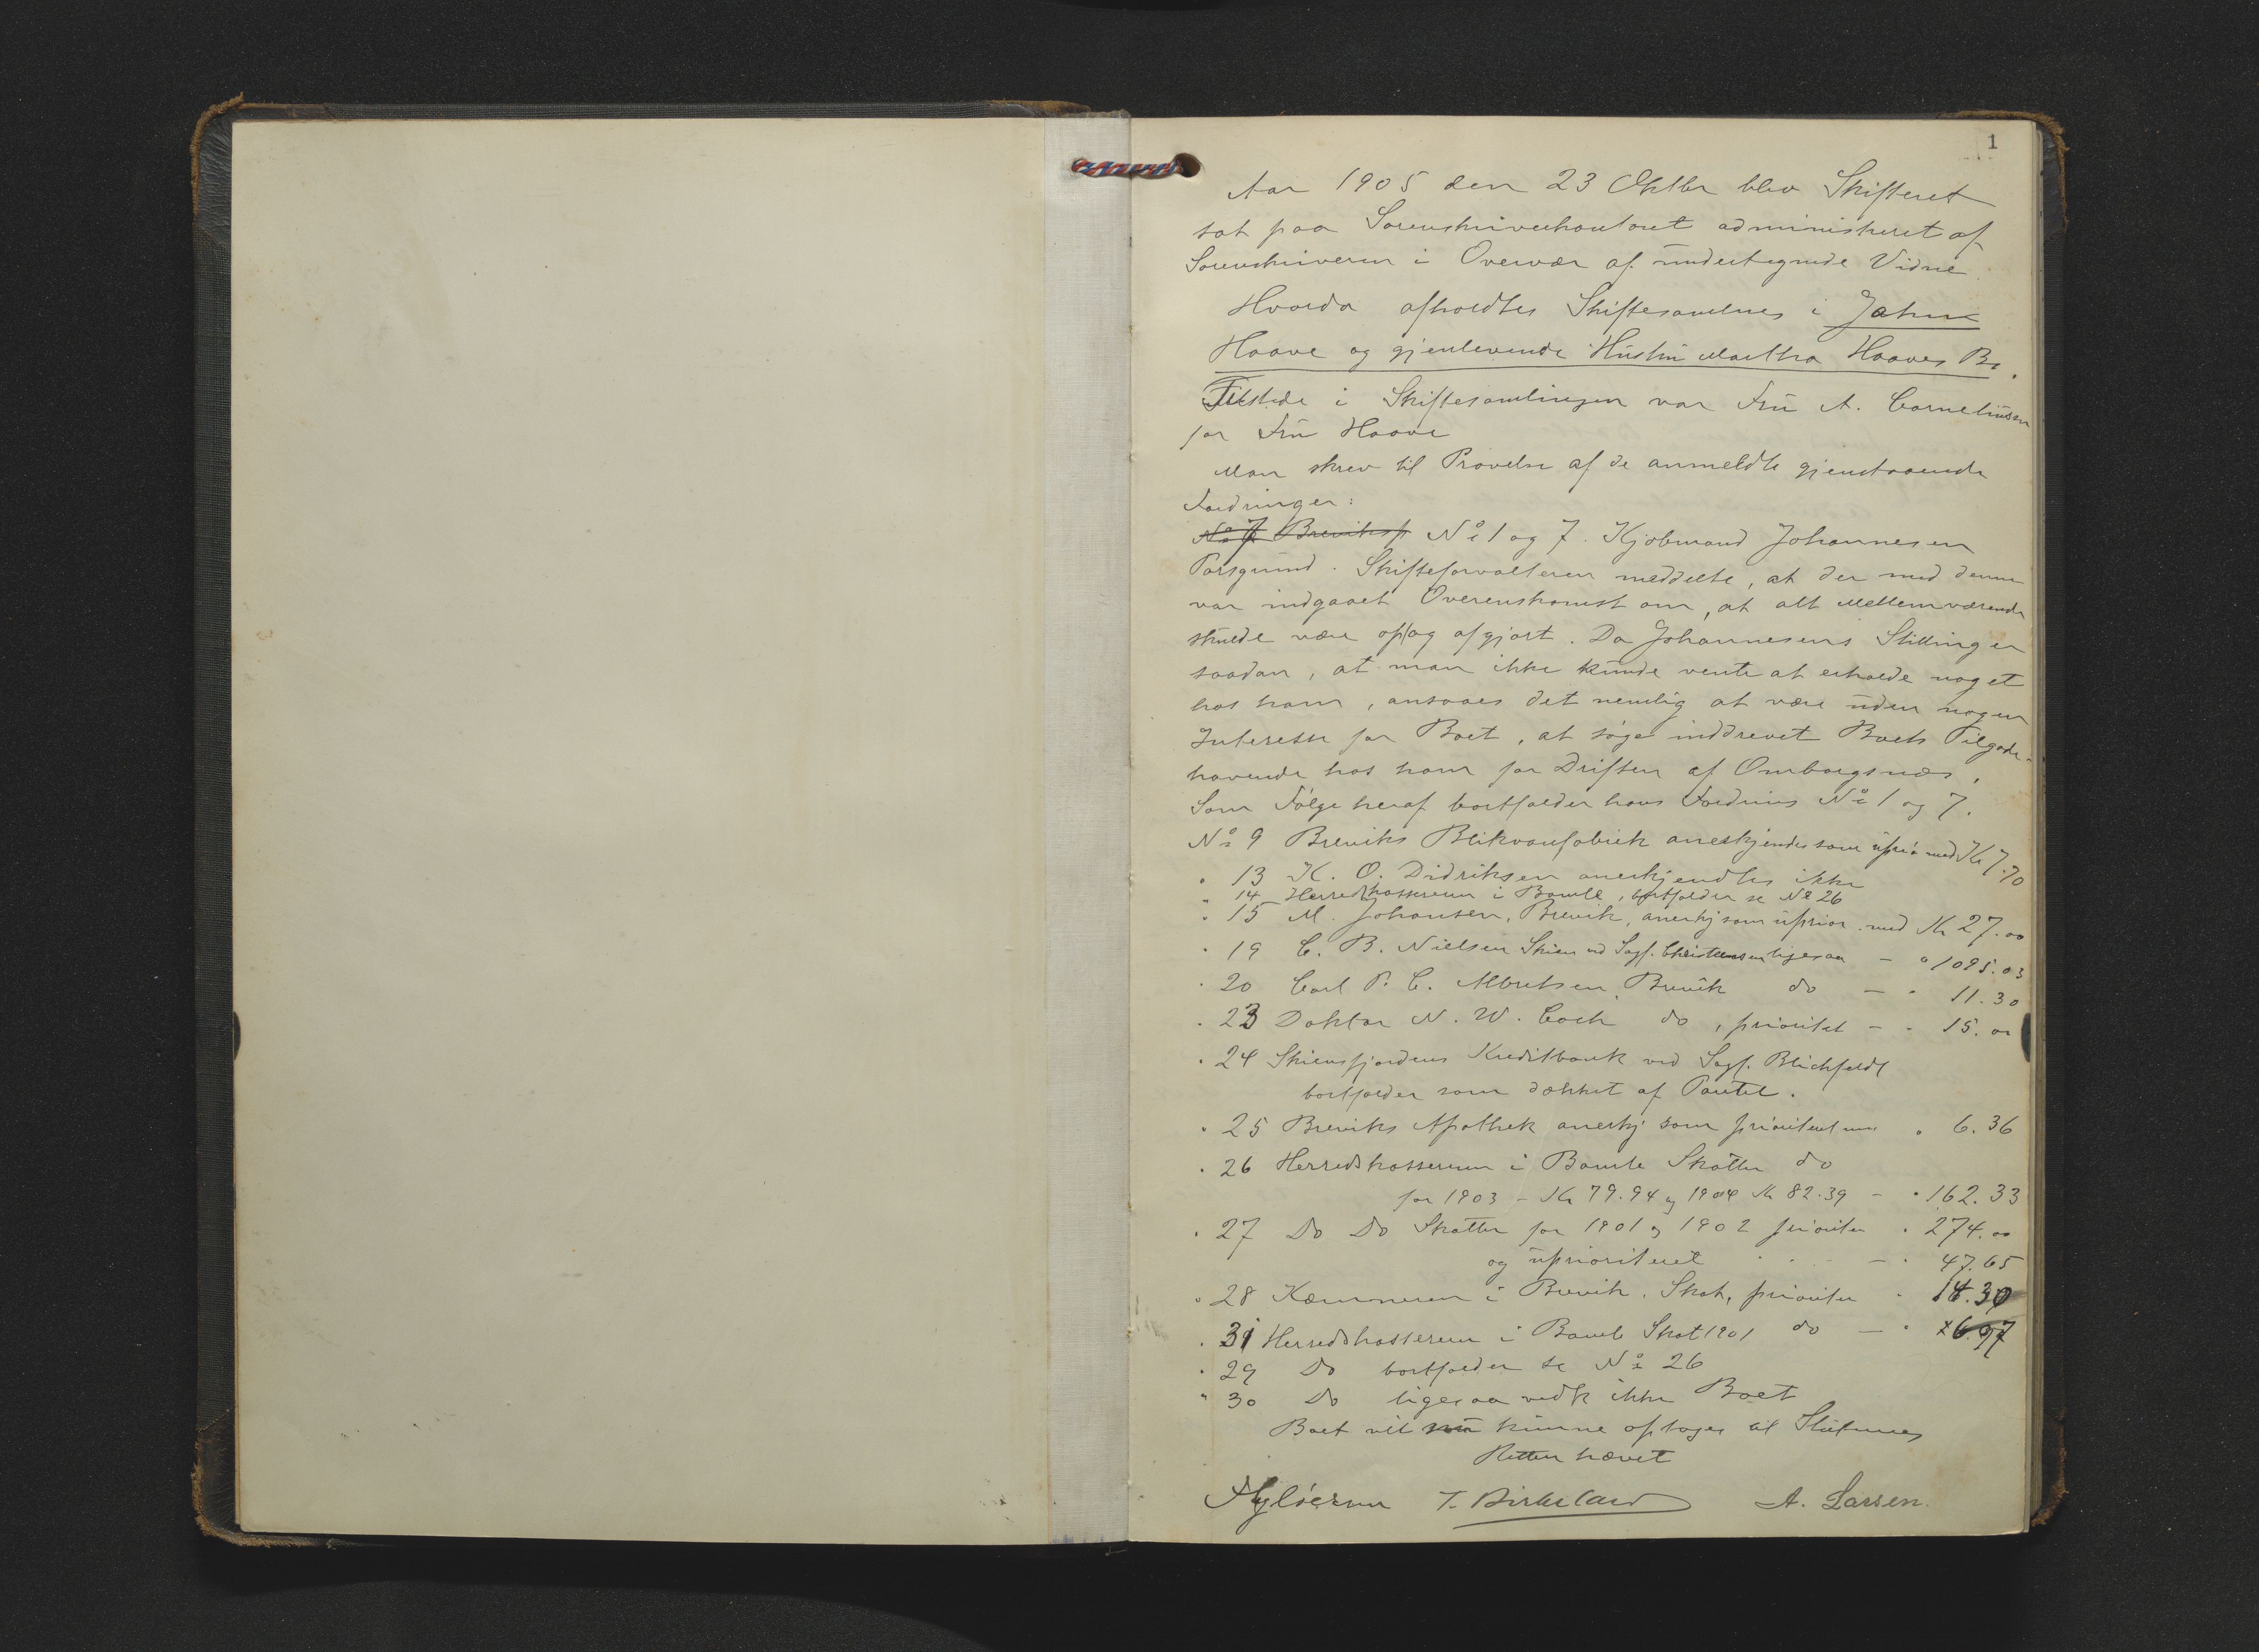 1
Aar 1905 den 23 Oktbr blev Skifteret
sat paa Sorenskriverkontoret administreret af
Sorenskriveren i Overvær af undertegnede Vidne
Hvorda afholdtes Skiftesamlnes i Jahn
Haave og gjenlevende Hustru Martha Haaves Bo.
Tilstede i Skiftesamlingen var Fru A. Corneliussen
for Fru Haave
Man skrev til Prøvelse af de anmeldte gjenstaaende
Fordringer:
No 7 Breviksp No 1 og 7. Kjøbmand Johannesen
Porsgrund. Skifteforvalteren meddelte, at der med denne
var indgaaet Overenskomst om, at alt Mellemværende
skulde være op og afgjort. Da Johannesens Stilling er
saadan, at man ikke kunde vente at erholde noget
hos ham, ansaaes det nemlig at være uden nogen
Interesse for Boet, at søge inddrevet Boets Tilgode-
havende hos ham for Driften af Omborgsnes.
Som Følge heraf bortfalder hans Fordring No 1 og 7.
No 9 Breviks Blikvarefabrik anerkjendes som uprio med Kr 7.70
" 13 K. O. Didriksen anerkjendtes ikke
" 14 Herredskassereren i Bamle, bortfalder se No 26
" 15 M. Johansen, Brevik, anerkj som uprior. med Kr 27.00
" 19 C. B. Nielsen Skien ved Sagf. Christensen ligesaa - " 1095.03
" 20 Carl P. C. Albretsen, Brevik do - " 11.30
" 23 Doktor N. W. Coch do, prioritet - " 15.00
" 24 Skiensfjordens Kreditbank ved Sagf. Blichfeldt
bortfalder som dækket af Pantet.
" 25 Breviks Apothek anerkj som prioriteret med " 6.36
" 26 Herredskassereren i Bamle Skatter do
for 1903 - Kr 79.94 og 1904 Kr 82.39 - " 162.33
" 27 Do Do Skatter for 1901 og 1902 prioriter " 274.00
og uprioriteret - " 47.65
" 28 Kæmneren i Brevik. Skat, prioriter " 14.30
" 31 Herredskassereren i Bamle Skat 1901 do - "
" 29 Do bortfalder se No 26
" 30 Do ligesaa vedk ikke Boet
Boet vil nu kunne optages til Slutning
Retten hævet
T. Birkeland A. Larsen.